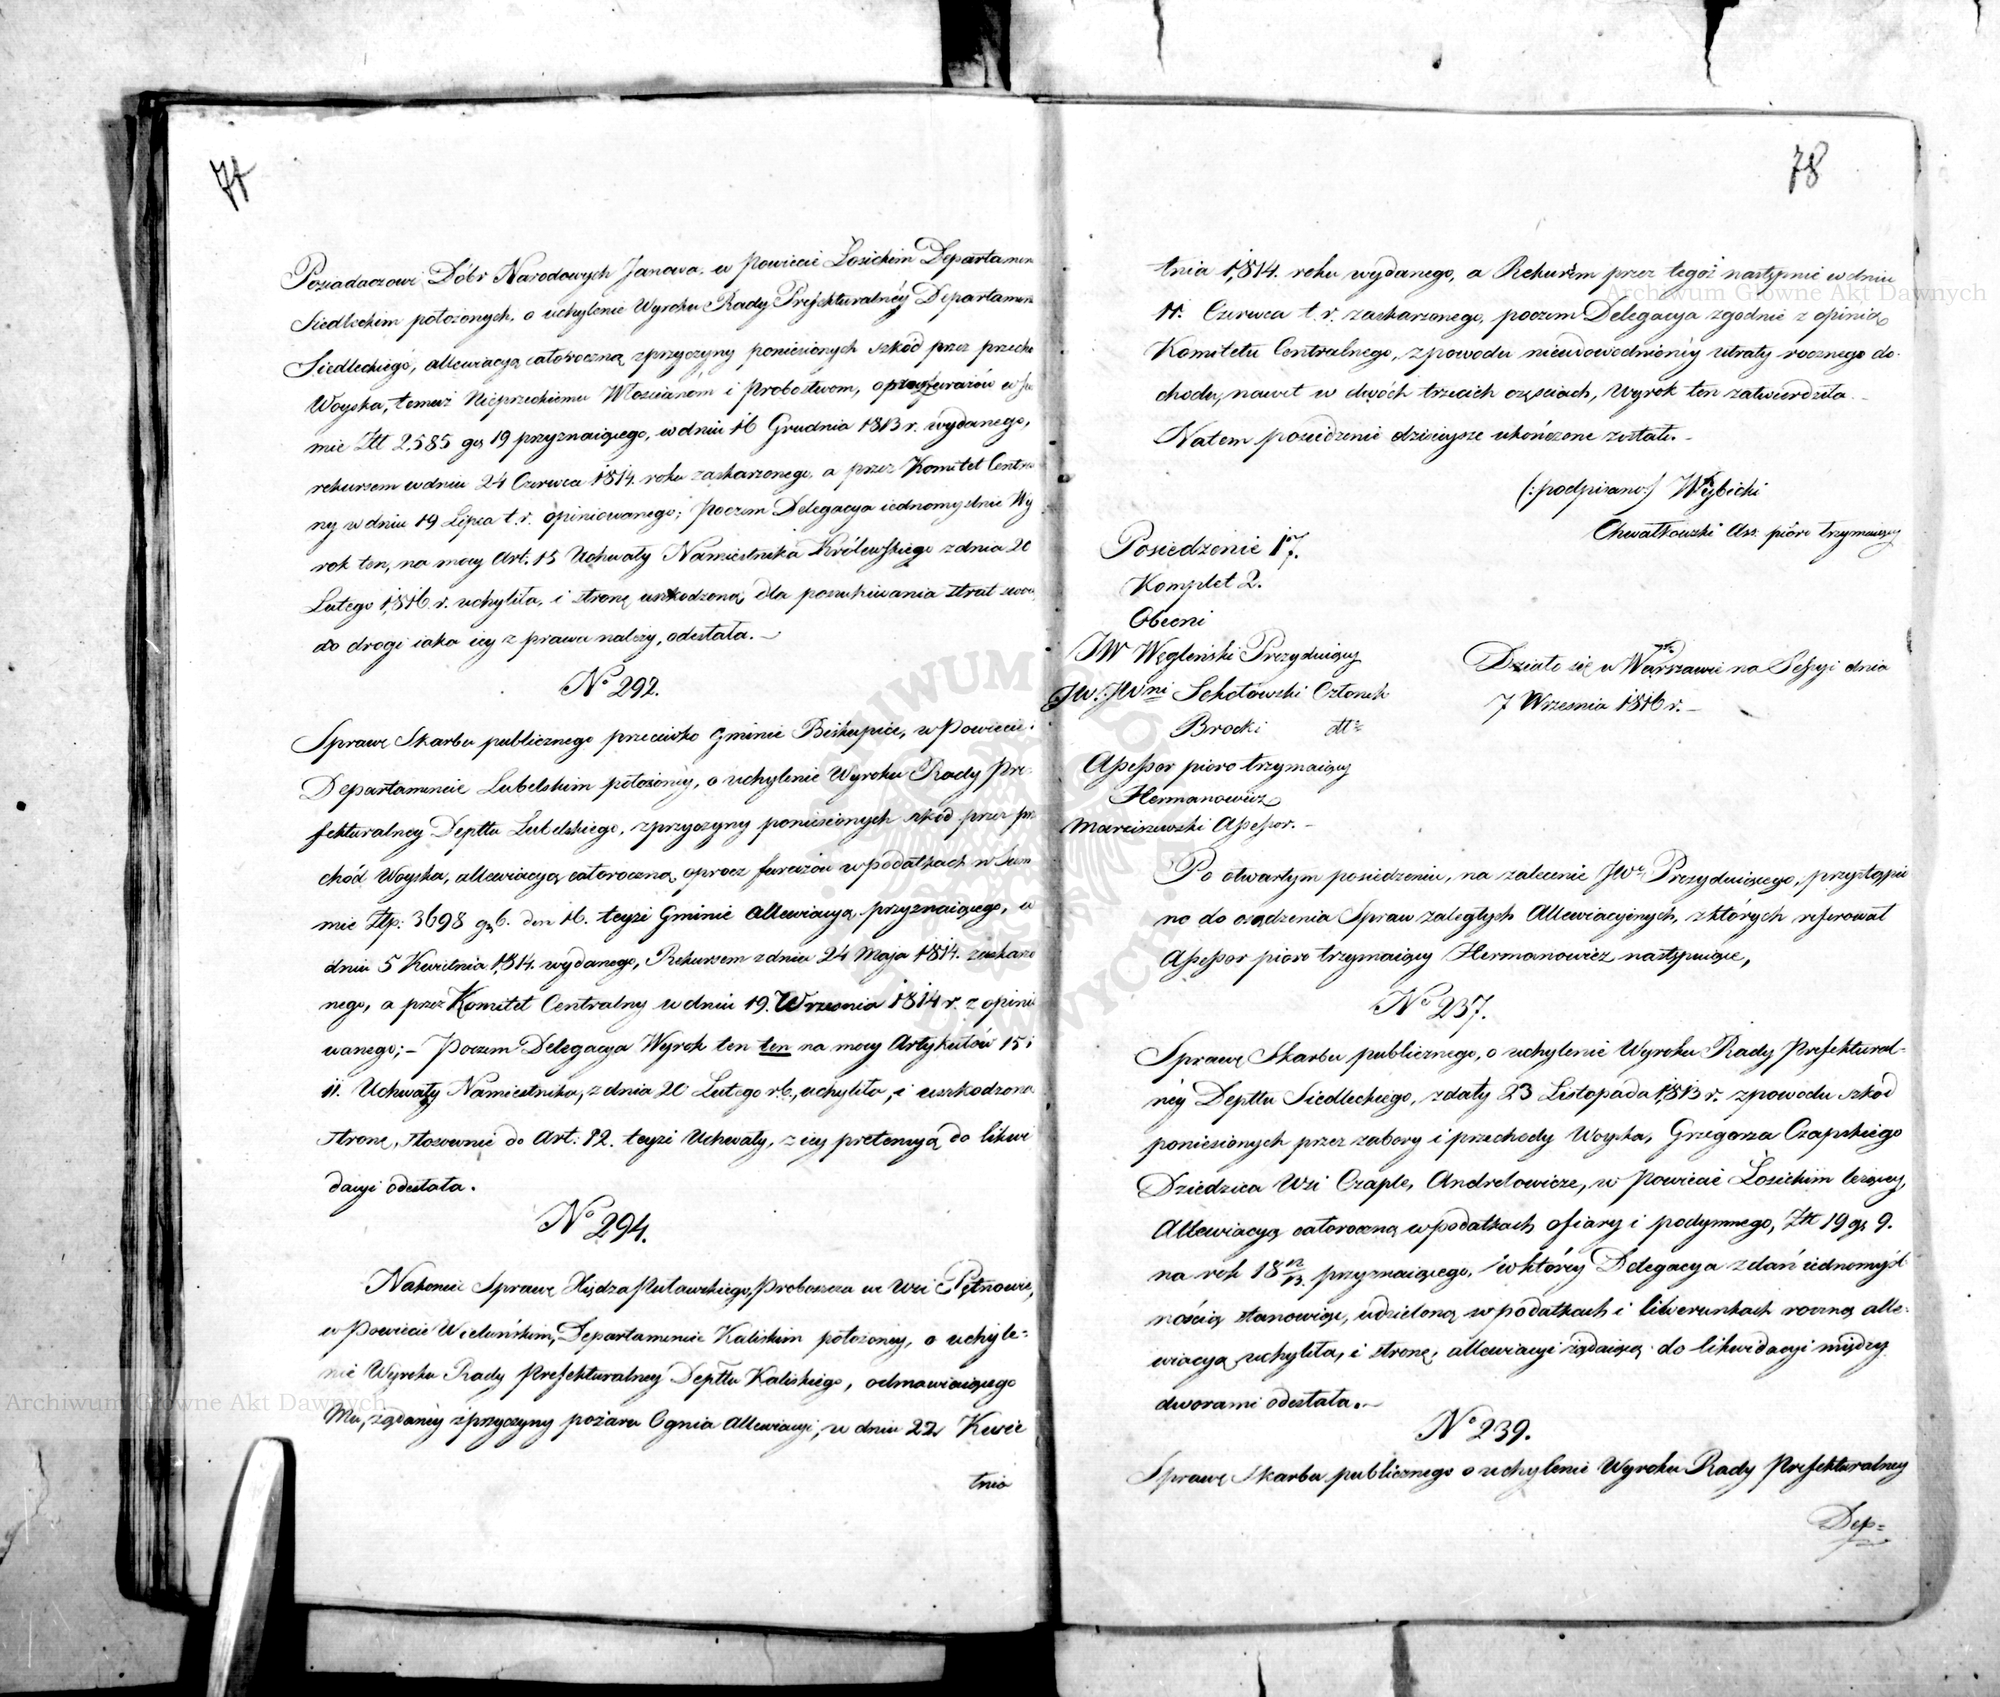 77
Posiadaczowi Dóbr Narodowych Janowa, w Powiecie Łosickim Departamen
Siedleckim położonych, o uchylenie Wyroku Rady Prefekturalnéy Departamen
Siedleckiego, allewiacyą całoroczną zprzyczyny poniesionych szkód przez przecho
Woyska, temuż Nieprzeckiemu Włoscianom i Probostwom, oprocz furażów w Su
mie Złł 2,585 gr 19 przyznaiącego, w dniu 16 Grudnia 1813 r. wydanego,
rekursem w dniu 24 Czerwca 1814. roku zaskarżonego, a przez Komitet Centra
ny w dniu 19 Lipca t. r. opiniowanego; poczem Delegacya iednomyslnie Wy
rok ten, na mocy Art. 15 Uchwały Namiestnika Królewskiego z dnia 20
Lutego 1,816 r. uchyliła, i stronę uszkodzoną, dla poszukiwania strat swoich
do drogi iaka iey z prawa należy, odesłała.—
No 292.
Sprawę Skarbu publicznego przeciwko Gminie Biskupice, w Powiecie i
Departamencie Lubelskim położoney, o uchylenie Wyroku Rady Pre-
fekturalney Depttu Lubelskiego, zprzyczyny poniesionych szkód przez prze
chód Woyska, allewiacyą całoroczną oprocz furażów w podatkach w Sum
mie Złp: 3698 gr 6. den 16. teyże Gminie Allewiacyą przyznaiącego, w
dniu 5 Kwietnia 1,814. wydanego, Rekursem z dnia 24 Maja 1814. zaskarżo
nego, a przez Komitet Centralny w dniu 19. Wrzesnia 1814 r. z opinio
wanego; – Poczem Delegacya Wyrok ten ten na mocy Artykułów 15 i
11. Uchwały Namiestnika, z dnia 20 Lutego r.b., uchyliła, i uszkodzoną
stronę, stosownie do Art: 12. teyże Uchwały, z iey pretensyą do likwi
dacyi odesłała.
No 294.
Nakoniec Sprawę Xiędza Puławskiego, Proboszcza we Wsi Pętnowie,
w Powiecie Wieluńskim, Departamencie Kaliskim położoney, o uchyle=
nie Wyroku Rady Prefekturalnéy Depttu Kaliskiego, odmawiaiącego
Mu, żądanéy zprzyczyny pożaru Ognia Allewiacyi, w dniu 22 Kwie
tnia
78
tnia 1,814. roku wydanego, a Rekursem przez tegoż następnie w dniu
11. Czerwca t. r. zaskarżonego, poczem Delegacya zgodnie z opinią
Komitetu Centralnego, zpowodu nieudowodnionéy utraty rocznego do-
chodu, nawet w dwóch trzecich częściach, Wyrok ten zatwierdziła.—
Natem posiedzenie dzisieysze ukończone zostało.—
(:podpisano:) Wybicki
Chwałkowski Ass. pióro trzymaiący
Posiedzenie 17.
Komplet 2.
Obecni
JW Węgleński Prezyduiący
JW. JWni Sokołowski Członek
Brocki dtto
Assessor pioro trzymaiący
Hermanowicz
Marciszewski Assessor.—
Działo się w Warszawie na Sessyi dnia
7 Wrzesnia 1816 r.—
Po otwartym posiedzeniu, na zalecenie JWo Prezyduiącego, przystąpio
no do osądzenia Spraw zaległych Allewiacyinych, z których referował
Assessor pioro trzymaiący Hermanowicz następuiące,
No 237.
Sprawę Skarbu publicznego, o uchylenie Wyroku Rady Prefektural-
néy Depttu Siedleckiego, z daty 23 Listopada 1,813 r. zpowodu szkód
poniesionych przez zabory i przechody Woyska, Grzegorza Czapskiego
Dziedzica Wsi Czaple, Andrelowicze, w Powiecie Łosickim leżącey,
Allewiacyą całoroczną w podatkach ofiary i podymnego, Złł 19 gr 9.
na rok 18 12/13. przyznaiącego, w któréy Delegacya zdań iednomyśl-
nością stanowiąc, udzieloną w podatkach i liwerunkach roczną alle-
wiacyą uchyliła, i stronę, allewiacyi żądaiącą do likwidacyi między
dworami odesłała.—
No 239.
Sprawę Skarbu publicznego o uchylenie Wyroku Rady Prefekturalney
Dep=
Archiwum Główne Akt Dawnych
Archiwum Główne Akt Dawnych